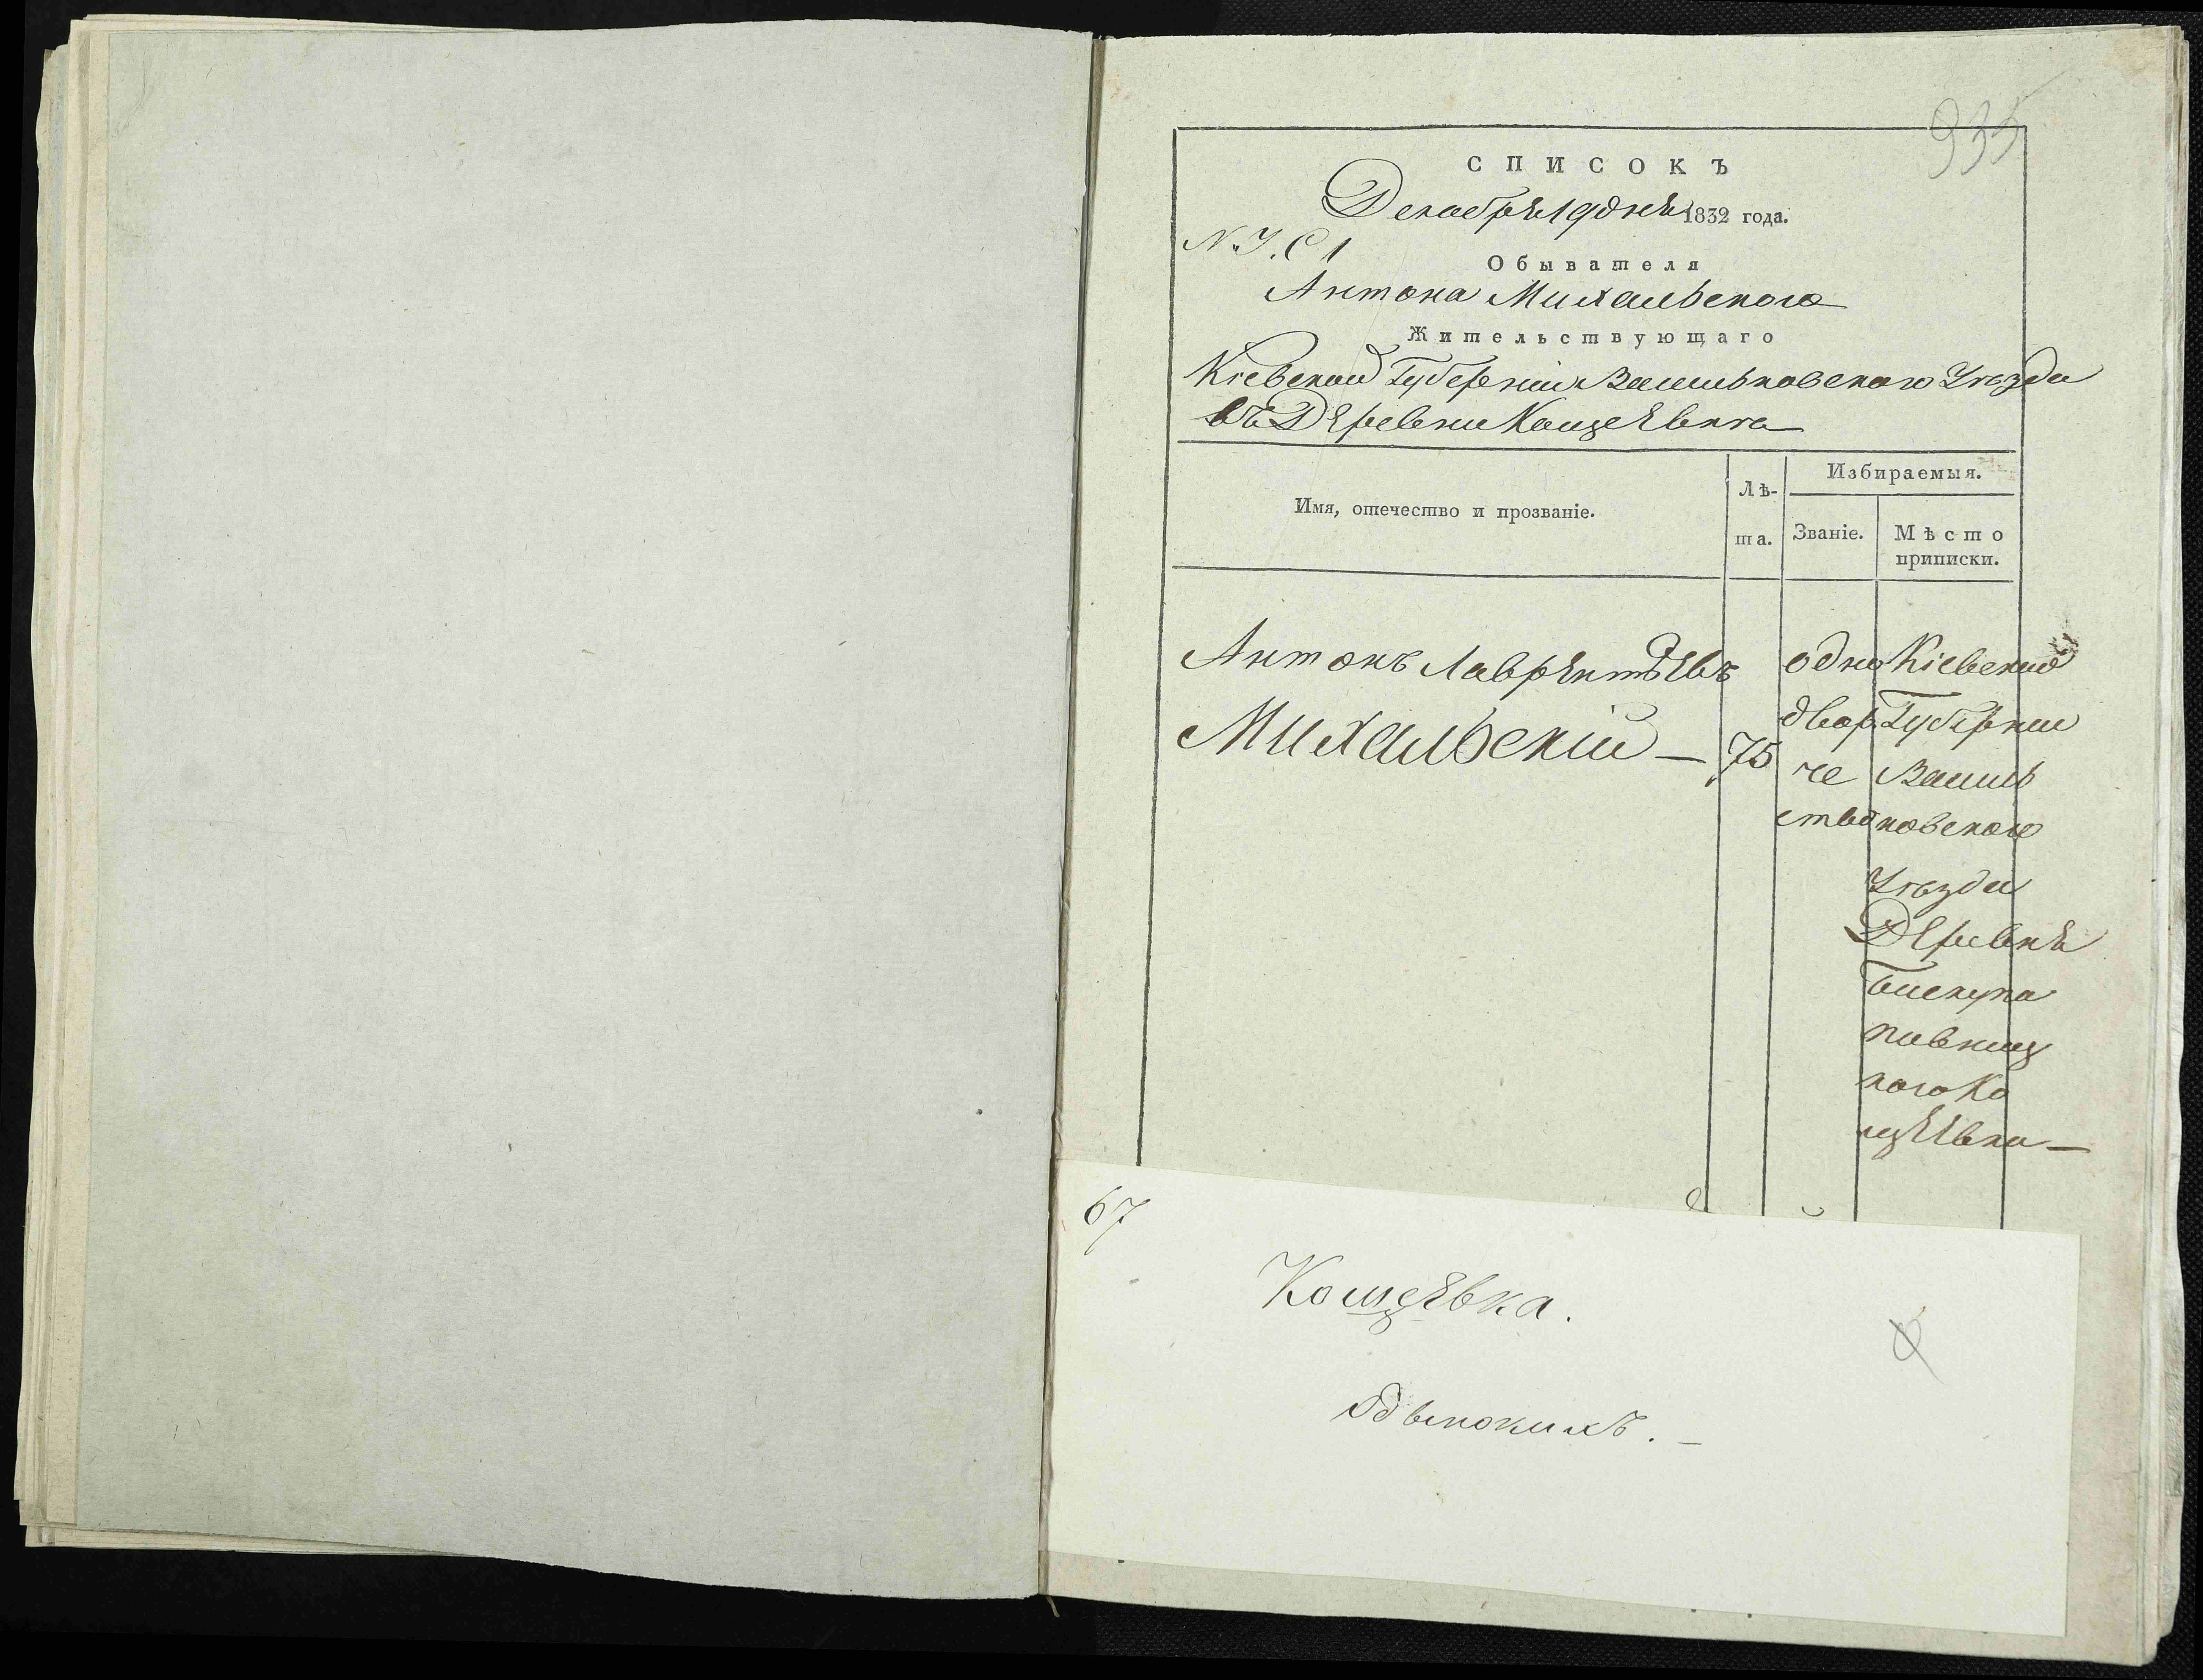 935
СПИСОКЪ
Декабря 19 дня 1832 года.
Обывателя
Антона Михальского
Жительствующаго
Кіевской Губерніи Васильковского Уезда
въ Деревни Кощеевка
Имя, отечество и прозваніе.
Лѣ-
та.
Избираемыя.
Званіе.
Мѣсто
приписки.
Антонъ Лаврентьевъ
Михальскій — 75
одно
двор
че
ство
Кіевской
Губерніи
Василь
ковского
Уезда
Деревня
ного Ко
щеевка —
67
Кощеевка.